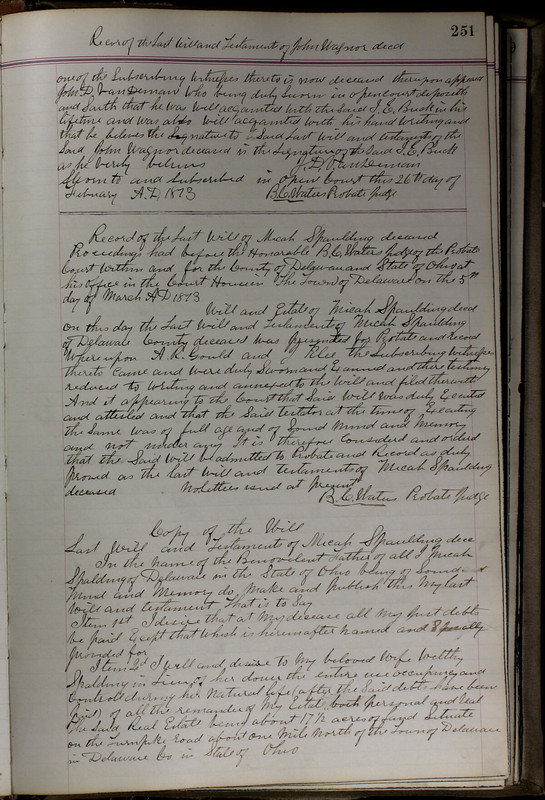 251
Record of the Last Will and Testaments of John Wagnor deed
one of the Subscribing Witnesses thereto is now deceased thereupon appeared
John D. VanDeman who being duly Sworn in open court deposeth
and Saith that he was well acquainted with the said J. E. Buck in his
lifetime and was also well acquainted with his hand writing and
that he beleves the Signature to said Last Will and testament of the
Said John Wagnor deceased is the Signature of the said J. E. Buck
as he verily believes J. D. VanDeman
Sworn to and Subscribed in open Court this 26th day of
February A.D. 1873 B.C. Waters Probate Judge
Record of the Last Will of Micah Spaulding deceased
Proceedings had before the Honorable B.C. Waters Judge of the Probate
Court within and for the County of Delaware and State of Ohio at
his office in the Court House in the Town of Delaware on the 5th
day of March A.D 1873
Will and Estate of Micah Spaulding deed
on this day the Last Will and Testament of Micah Spaulding
of Delaware County deceased was presented for Probate and record
Whereupon A. R. Gould and J Klee the Subscribing witnesses
thereto came and were duly Sworn and Examined and there testimony
reduced to writing and annexed to the Will and filed therewith
And it appearing to the Court that Said Will was duly Executed
and attested and that the Said testator at the time of Executing
the Same was of full age and of Sound Mind and Memory
and not under any It is therefore Considered and ordered
that the Said Will be admitted to Probate and Record as duly
proved as the last Will and testaments of Micah Spaulding
deceased No letters issued at present
B.C. Waters Probate Judge
Copy of the Will
Last Will and Testaments of Micah Spaulding dece
In the name of the Benevolent Father of all I Micah
Spalding of Delaware in the State of Ohio being of sound
Mind and Memory do, Make and publish this My last
Will and testament That is to Say
Item 1st I desire that at My decease all My just debts
be paid Except that which is hereinafter named and
provided for
Item 2d I will and, desire to My beloved Wife Welthy
Spalding in lieu of her dower the entire use occupency and
Control during her Natural life (after the Said debts have been
paid) of all the remander of My Estate both personal and real
The Said Real Estate being about 17½ acres of land Situate
on the Turnpike road about one Mile North of the Town of Delaware
in Delaware Co in State of Ohio